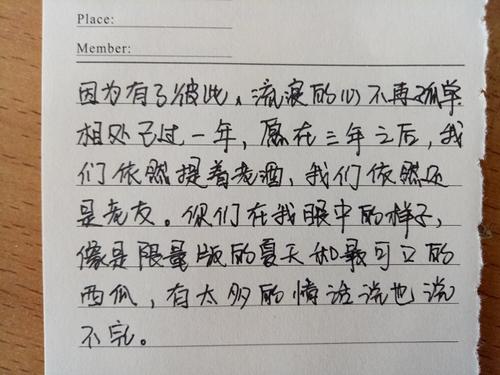 Place:
Member:
因为有了彼此，流浪的心不再孤单
相处已过一年，愿在三年之后，我
们依然提着老酒，我们依然还
是老友。你们在我眼中的样子，
像是限量版的夏天和最可口的
西瓜，有太多的情话说也说
不完。